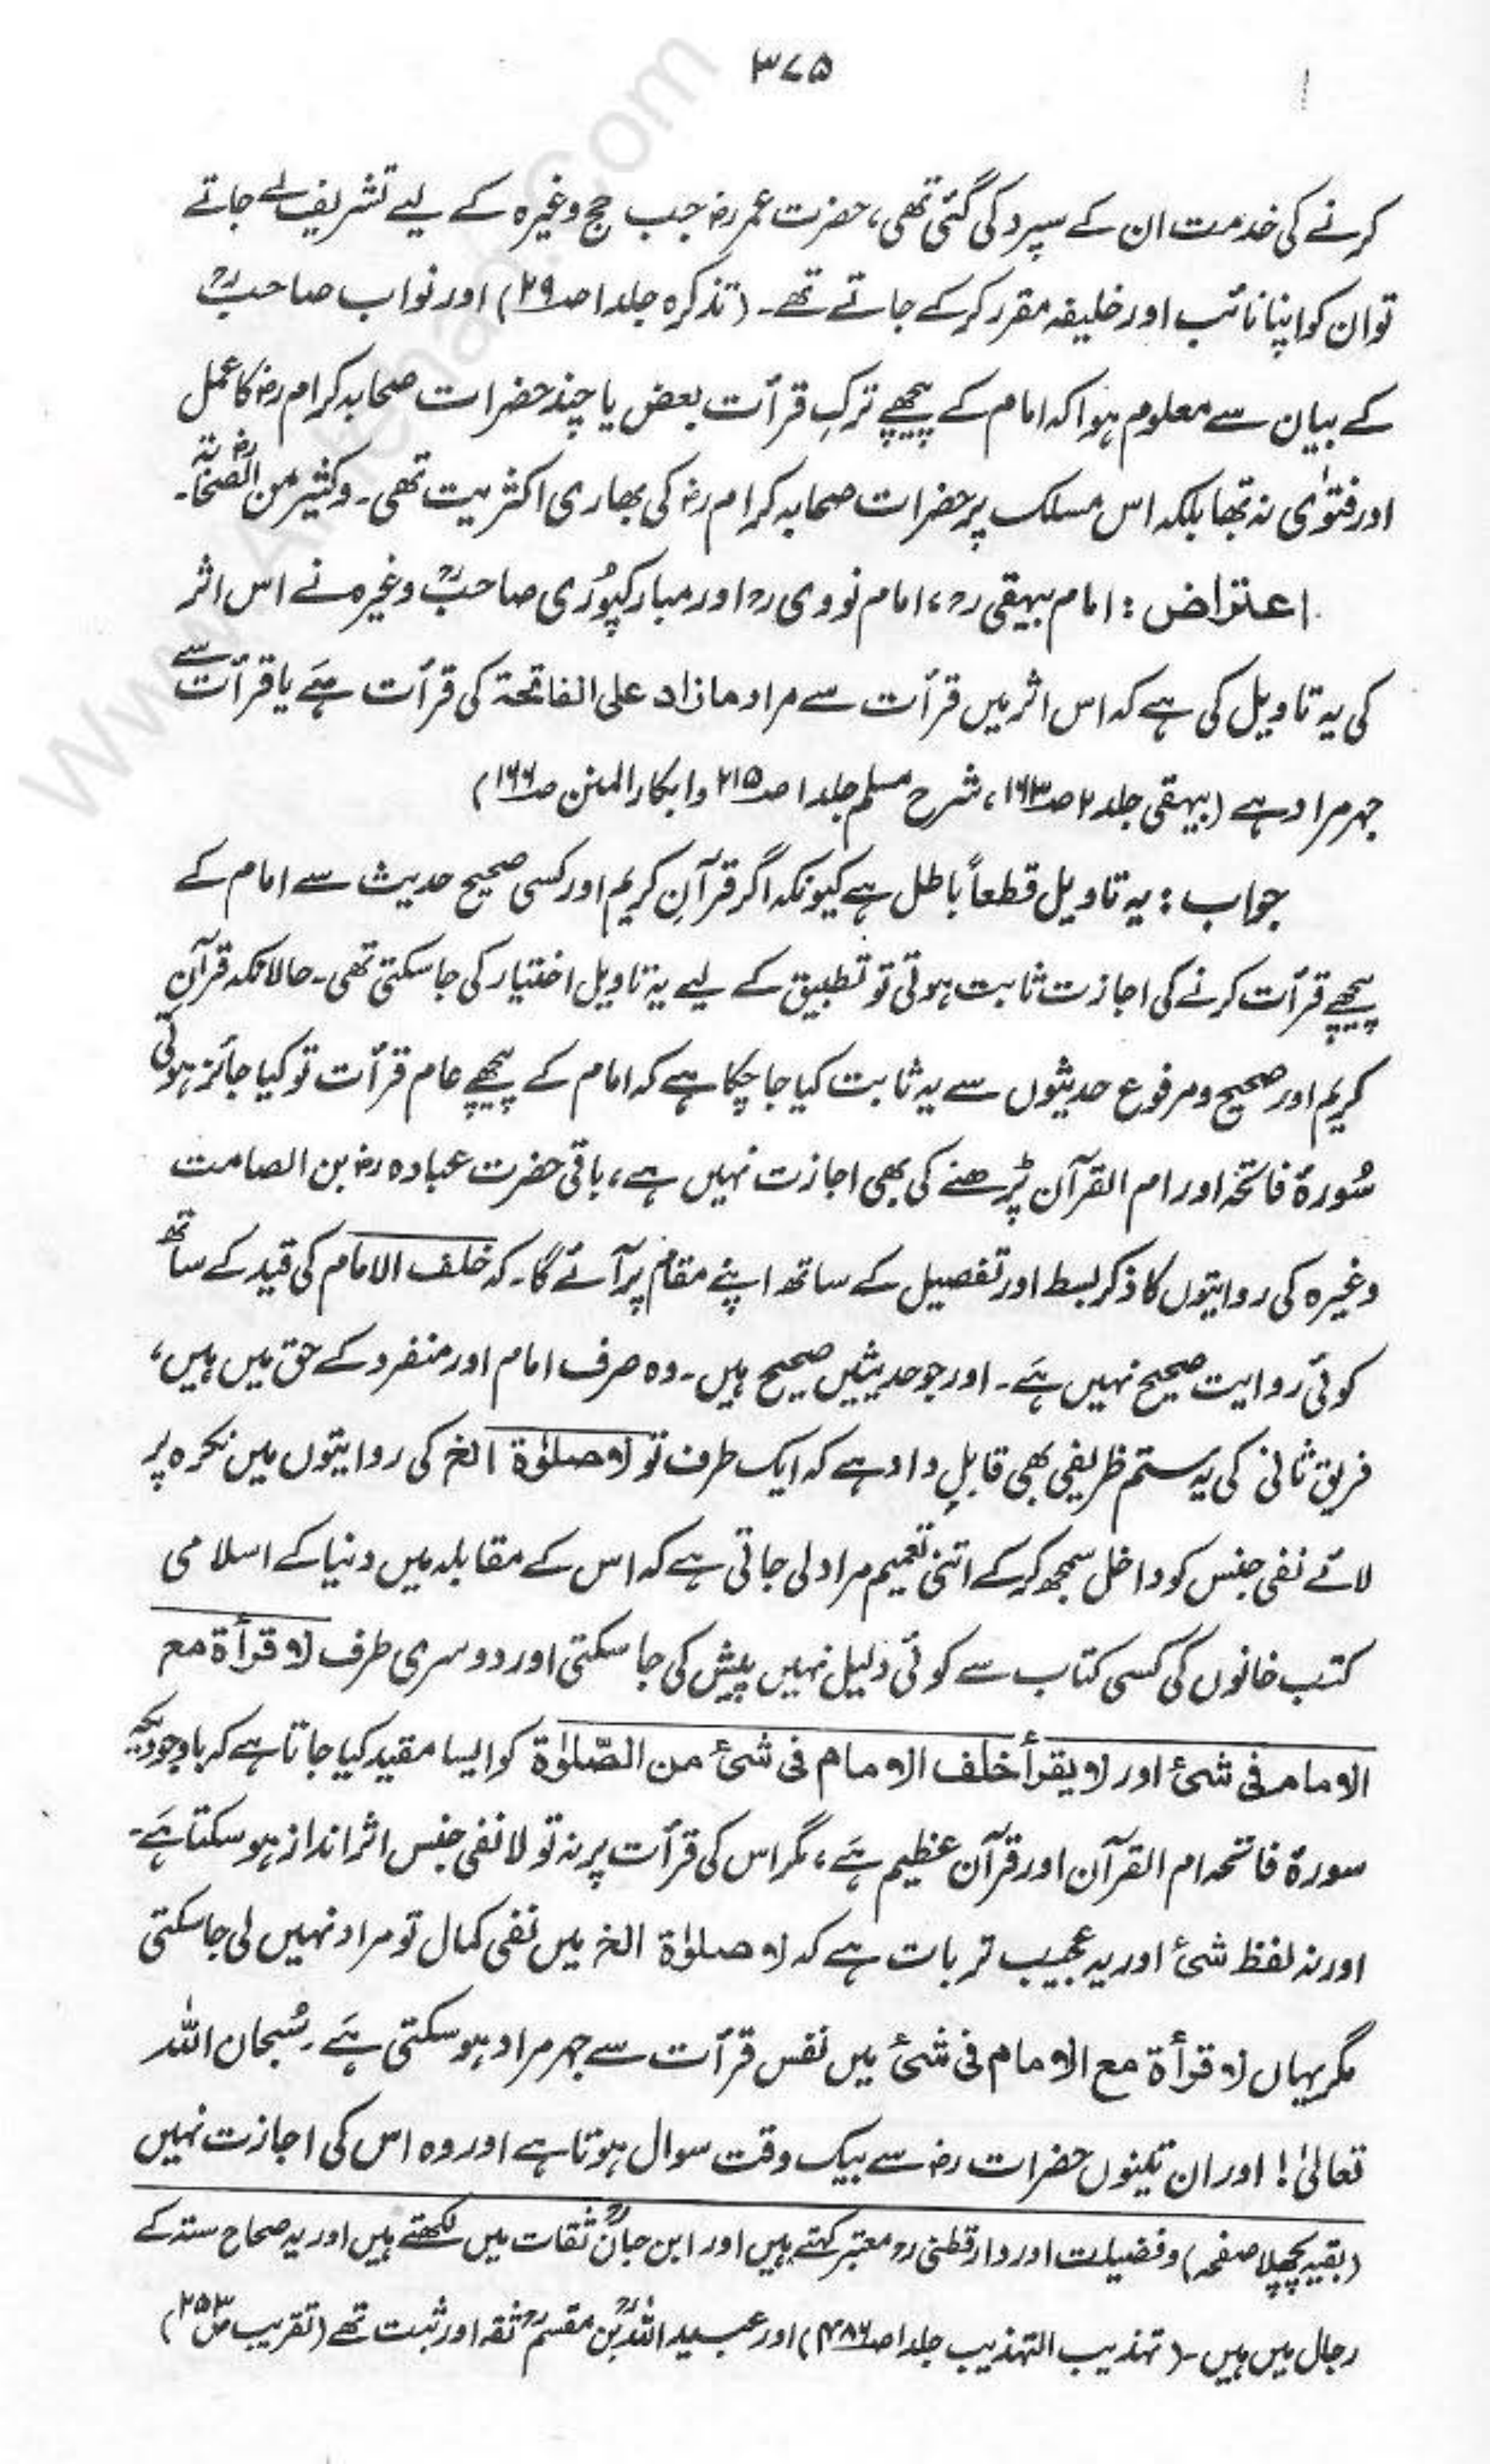 ۳۷۵
کرنے کی خدمت ان کے سپرد کی گئی تھی، حضرت عمر رضؓ جب حج وغیرہ کے لیے تشریف لے جاتے
تو ان کو اپنا نائب اور خلیفہ مقرر کر کے جاتے تھے۔ (تذکرہ جلد ۱ صـ۲۹) اور نواب صاحبؒ
کے بیان سے معلوم ہوا کہ امام کے پیچھے ترکِ قرأت بعض یا چند حضرات صحابہ کرام رضؓ کا عمل
اور فتوٰی نہ تھا بلکہ اس مسلک پر حضرات صحابہ کرام رضؓ کی بھاری اکثریت تھی۔ وکثیر من الصحابۃ رضؓ۔
اعتراض : امام بیہقی رحؒ، امام نووی رحؒ اور مبارکپوُری صاحبؒ وغیرہ نے اس اثر
کی یہ تاویل کی ہے کہ اس اثر میں قرأت سے مراد مازاد علی الفاتحۃ کی قرأت ہَے یا قرأت سے
جہر مراد ہے (بیہقی جلد ۲ صـ۱۶۳، شرح مسلم جلد ۱ صـ۲۱۵ وابکار المنن صـ۱۶۶)
جواب : یہ تاویل قطعاً باطل ہے کیونکہ اگر قرآنِ کریم اور کسی صحیح حدیث سے امام کے
پیچھے قرأت کرنے کی اجازت ثابت ہوتی تو تطبیق کے لیے یہ تاویل اختیار کی جا سکتی تھی۔ حالانکہ قرآن
کریم اور صحیح و مرفوع حدیثوں سے یہ ثابت کیا جا چکا ہے کہ امام کے پیچھے عام قرأت تو کیا جائز ہوتی
سُورۃٔ فاتحہ اور ام القرآن پڑھنے کی بھی اجازت نہیں ہے، باقی حضرت عبادہ رضؓ بن الصامت
وغیرہ کی روایتوں کا ذکر بسط اور تفصیل کے ساتھ اپنے مقام پر آئے گا۔ کہ خلف الامام کی قید کے ساتھ
کوئی روایت صحیح نہیں ہَے۔ اور جو حدیثیں صحیح ہیں۔ وہ صرف امام اور منفرد کے حق میں ہیں،
فریق ثانی کی یہ ستم ظریفی بھی قابلِ داد ہے کہ ایک طرف تو لا صلوٰۃ الخ کی روایتوں میں نکرہ پر
لائے نفی جنس کو داخل سمجھ کر کے اتنی تعمیم مراد لی جاتی ہے کہ اس کے مقابلہ میں دنیا کے اسلامی
کتب خانوں کی کسی کتاب سے کوئی دلیل نہیں پیش کی جا سکتی اور دوسری طرف لا قرأۃ مع
الامام فی شئ اور لا یقرأ خلف الامام فی شئ من الصّلوٰۃ کو ایسا مقید کیا جاتا ہے کہ باوجودیکہ
سورۃٔ فاتحہ ام القرآن اور قرآن عظیم ہَے، مگر اس کی قرأت پر نہ تو لا نفی جنس اثر انداز ہو سکتا ہَے۔
اور نہ لفظ شئ اور یہ عجیب تر بات ہے کہ لا صلوٰۃ الخ میں نفی کمال تو مراد نہیں لی جا سکتی
مگر یہاں لا قرأۃ مع الامام فی شئ میں نفس قرأت سے جہر مراد ہو سکتی ہَے۔ سُبحان اللہ
تعالیٰ! اور ان تینوں حضرات رضؓ سے بیک وقت سوال ہوتا ہے اور وہ اس کی اجازت نہیں
(بقیہ پچھلا صفحہ) وفضیلت اور دارقطنی رحؒ معتبر کہتے ہیں اور ابن حبانؒ ثقات میں لکھتے ہیں اور یہ صحاح ستہ کے
رجال میں ہیں۔ (تہذیب التہذیب جلد ۱ صـ۴۸۶) اور عبید اللہؒ بن مقسمؒ ثقہ اور ثبت تھے (تقریب صـ۲۵۳)